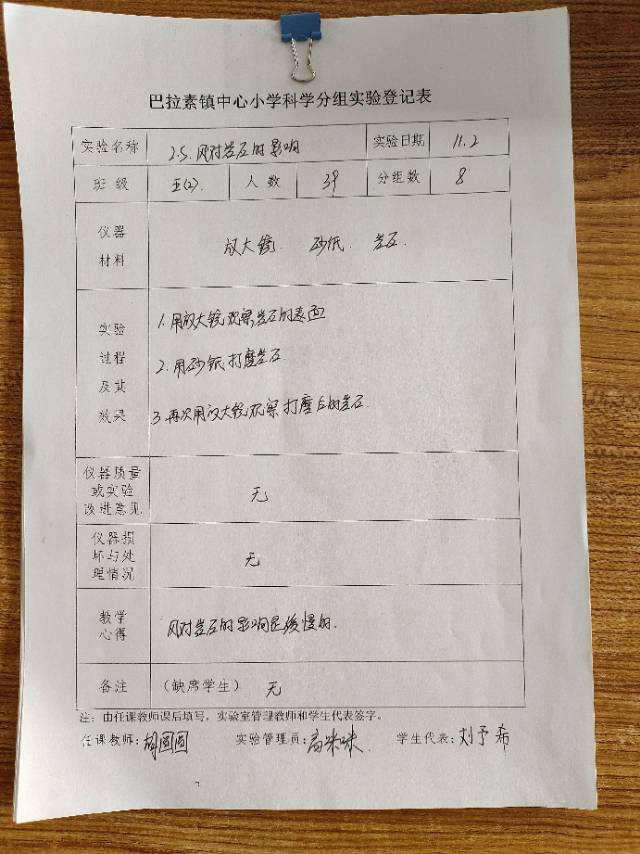 巴拉素镇中心小学科学分组实验登记表
实验名称 2.5.风对岩石的影响 实验日期 11.2
班级 五(2). 人数 39 分组数 8
仪器材料 放大镜. 砂纸. 岩石.
实验过程及其效果
1.用放大镜观察岩石的表面
2.用砂纸打磨岩石
3.再次用放大镜观察打磨后的岩石.
仪器质量或实验改进意见 无
仪器损坏与处理情况 无
教学心得 风对岩石的影响是缓慢的.
备注 (缺席学生) 无
注:由任课教师课后填写,实验室管理教师和学生代表签字。
任课教师:胡圆圆 实验管理员:高 学生代表:刘予希